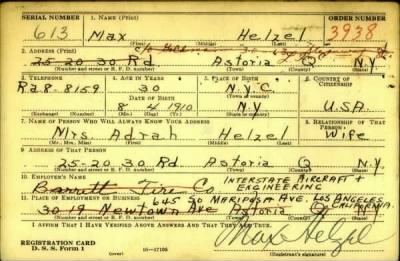 SERIAL NUMBER 1. NAME (Print) ORDER NUMBER
613 Max Helzel 3938
(First) (Middle) (Last)
2. ADDRESS (Print)
25-20 30 Rd. Astoria Q N.Y.
(Number and street or R. F. D. number) (Town) (County) (State)
3. TELEPHONE 4. AGE IN YEARS 5. PLACE OF BIRTH 6. COUNTRY OF CITIZENSHIP
Ra 8-8159 30 N.Y.C.
DATE OF BIRTH
8 4 1910 N.Y U.S.A.
(Exchange) (Number) (Mo.) (Day) (Yr.) (Town or county) (State or country)
7. NAME OF PERSON WHO WILL ALWAYS KNOW YOUR ADDRESS 8. RELATIONSHIP OF THAT PERSON
Mrs. Adrah Helzel Wife
(Mr., Mrs., Miss) (First) (Middle) (Last)
9. ADDRESS OF THAT PERSON
25-20 30 Rd Astoria Q N.Y.
(Number and street or R. F. D. number) (Town) (County) (State)
10. EMPLOYER'S NAME INTERSTATE AIRCRAFT +
Barrett Tire Co ENGINEERING
11. PLACE OF EMPLOYMENT OR BUSINESS 645 SO MARIPOSA AVE. LOS ANGELES
CALIFORNIA.
30-19 Newtown Ave Astoria Q N.Y.
(Number and street or R. F. D. number) (Town) (County) (State)
I AFFIRM THAT I HAVE VERIFIED ABOVE ANSWERS AND THAT THEY ARE TRUE.
Max Helzel
REGISTRATION CARD
D. S. S. Form 1 (over) 16-17105 (Registrant's signature)